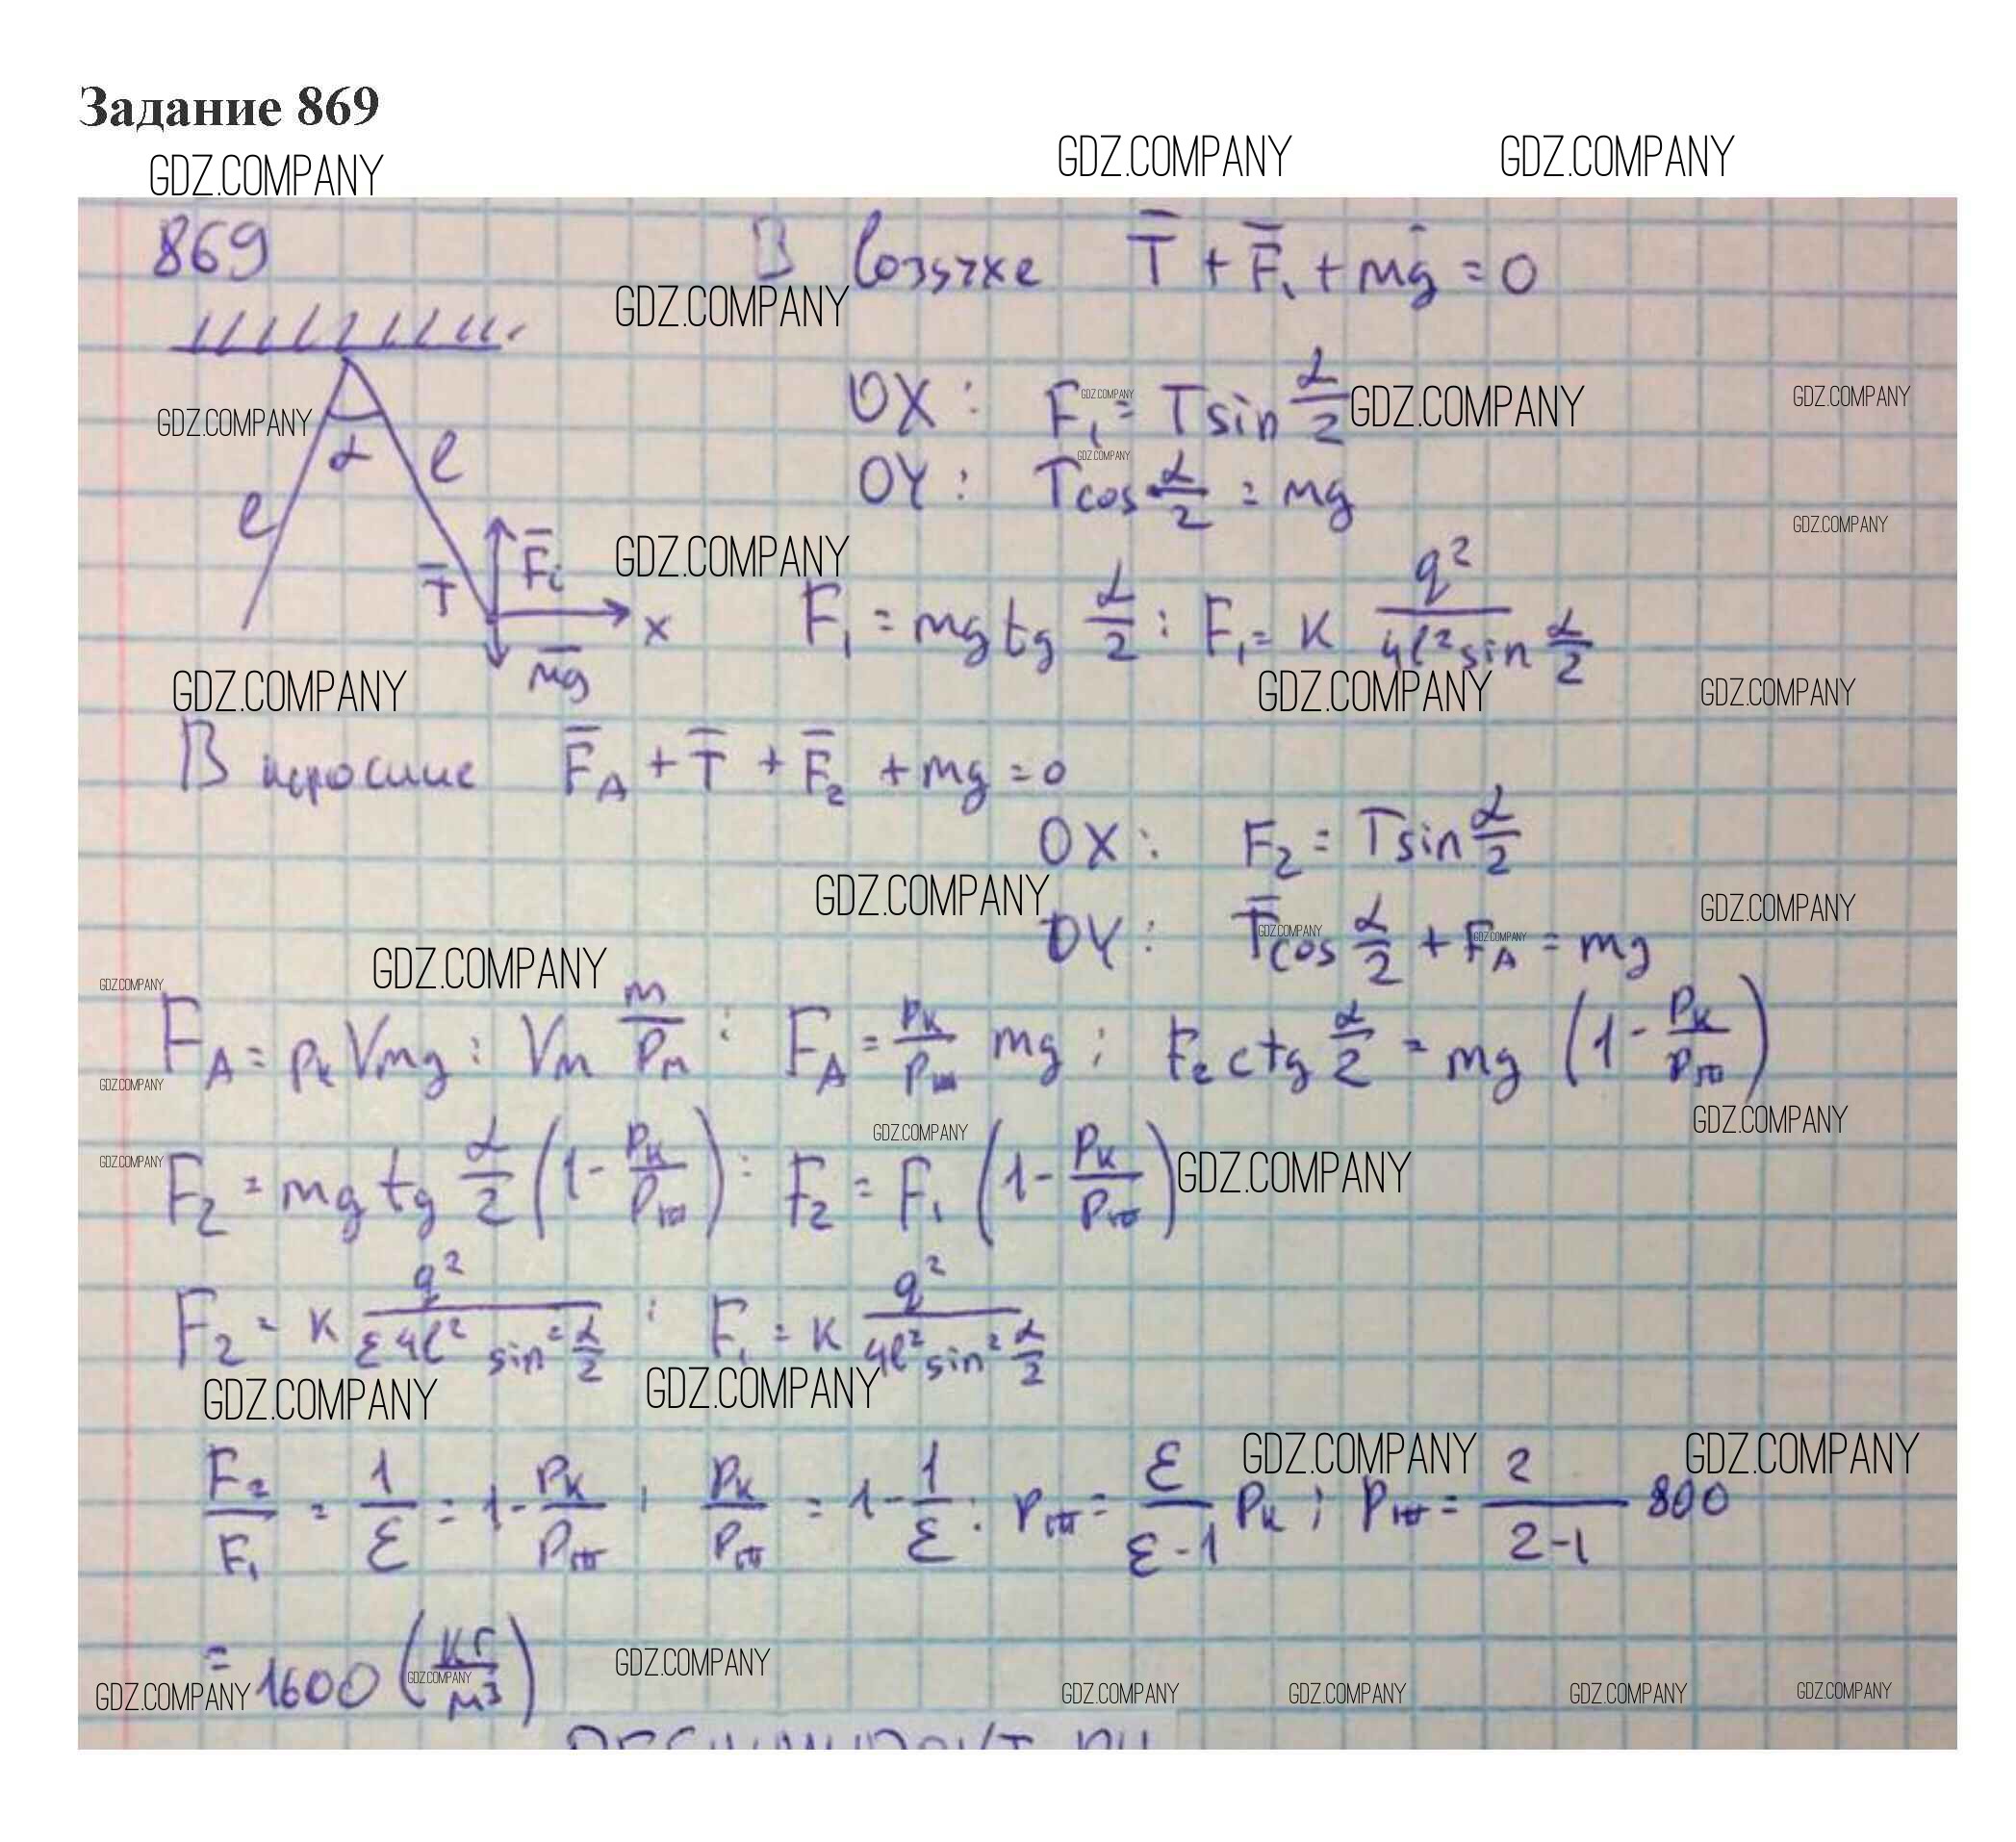 Задание 869
GDZ.COMPANY GDZ.COMPANY GDZ.COMPANY
869 В воздухе T̅ + F̅₁ + mg̅ = 0
GDZ.COMPANY
OX : F₁ = T sin α/2 GDZ.COMPANY GDZ.COMPANY GDZ.COMPANY
GDZ.COMPANY α l l
OY : T cos α/2 = mg GDZ.COMPANY
GDZ.COMPANY
T̅ F̅ GDZ.COMPANY
m̅g̅ x F₁ = mg tg α/2 ; F₁ = к q²/(4l² sin α/2)
GDZ.COMPANY GDZ.COMPANY GDZ.COMPANY
В керосине F̅_A + T̅ + F̅₂ + mg = 0
OX : F₂ = T sin α/2
GDZ.COMPANY GDZ.COMPANY
OY : T̅ cos α/2 + F_A = mg GDZ.COMPANY GDZ.COMPANY
GDZ.COMPANY GDZ.COMPANY
F_A = ρк Vmg ; Vm m/ρ ; F_A = ρк/ρш mg ; F₂ ctg α/2 = mg (1 - ρк/ρш)
GDZ.COMPANY GDZ.COMPANY
GDZ.COMPANY GDZ.COMPANY
F₂ = mg tg α/2 (1 - ρк/ρш) : F₂ = F₁ (1 - ρк/ρш) GDZ.COMPANY
F₂ = к q²/(ε4l² sin² α/2) ; F₁ = к q²/(4l² sin² α/2)
GDZ.COMPANY GDZ.COMPANY
GDZ.COMPANY GDZ.COMPANY
F₂/F₁ = 1/ε = 1 - ρк/ρш ; ρк/ρш = 1 - 1/ε : ρш = ε/(ε-1) ρк ; ρш = 2/(2-1) 800
= 1600 (кг/м³) GDZ.COMPANY
GDZ.COMPANY GDZ.COMPANY GDZ.COMPANY GDZ.COMPANY GDZ.COMPANY GDZ.COMPANY